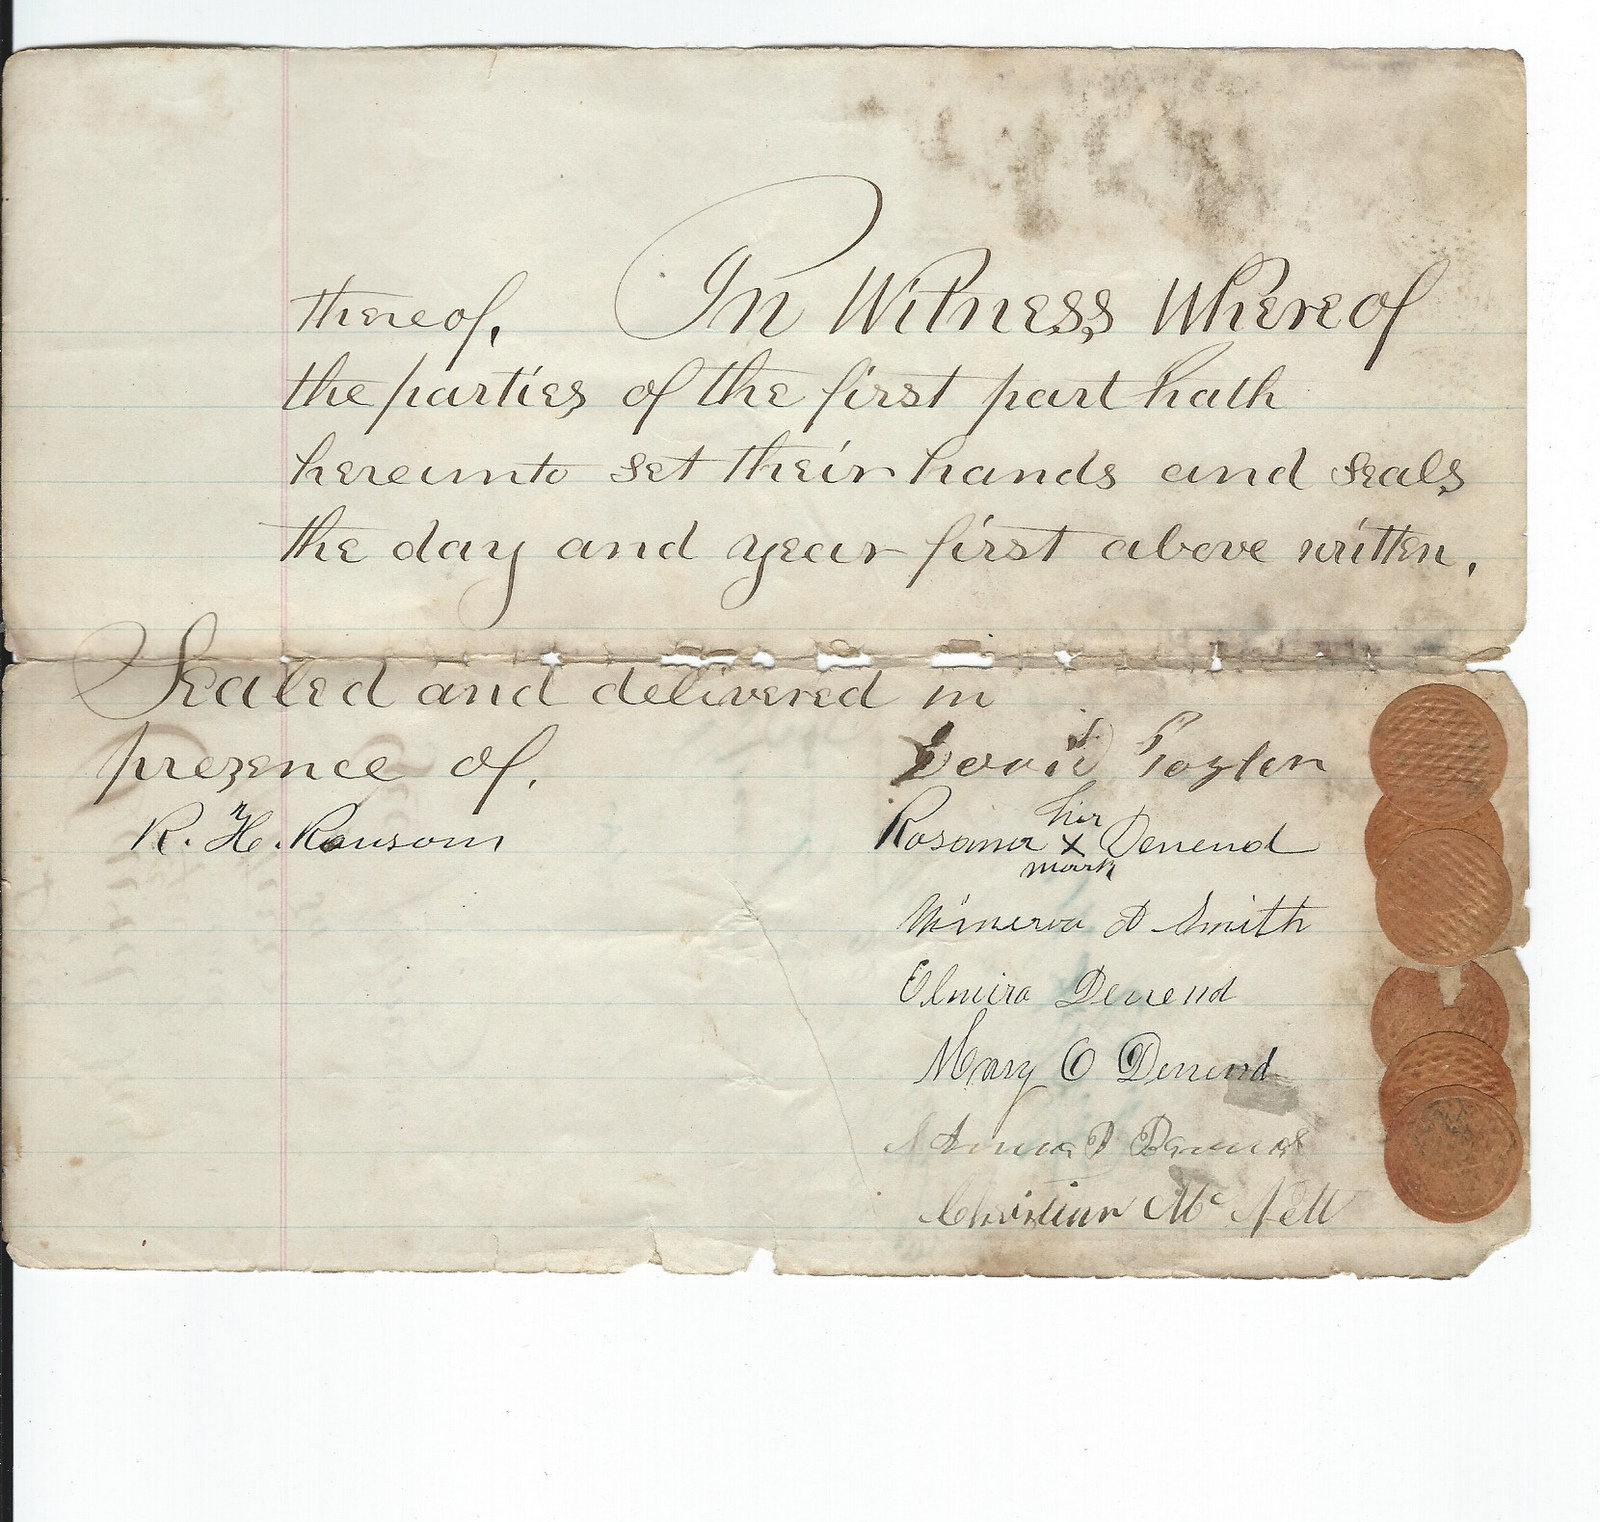 thereof, In Witness Whereof
the parties of the first part hath
hereunto set their hands and seals
the day and year first above written.
Sealed and delivered in
prezence of.
David Taylor
R. H. Ransom
her
Rosanna X Denend
mark
Minerva D Smith
Elmira Denend
Mary O Denend
Denend
Christian Mc Nett